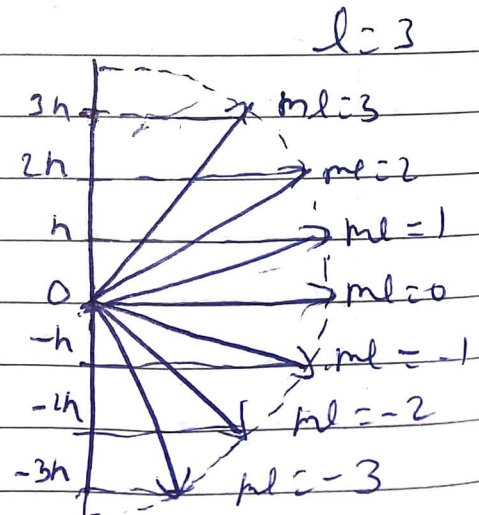 l=3
3h ml=3
2h ml=2
h ml=1
0 ml=0
-h ml=-1
-2h ml=-2
-3h ml=-3